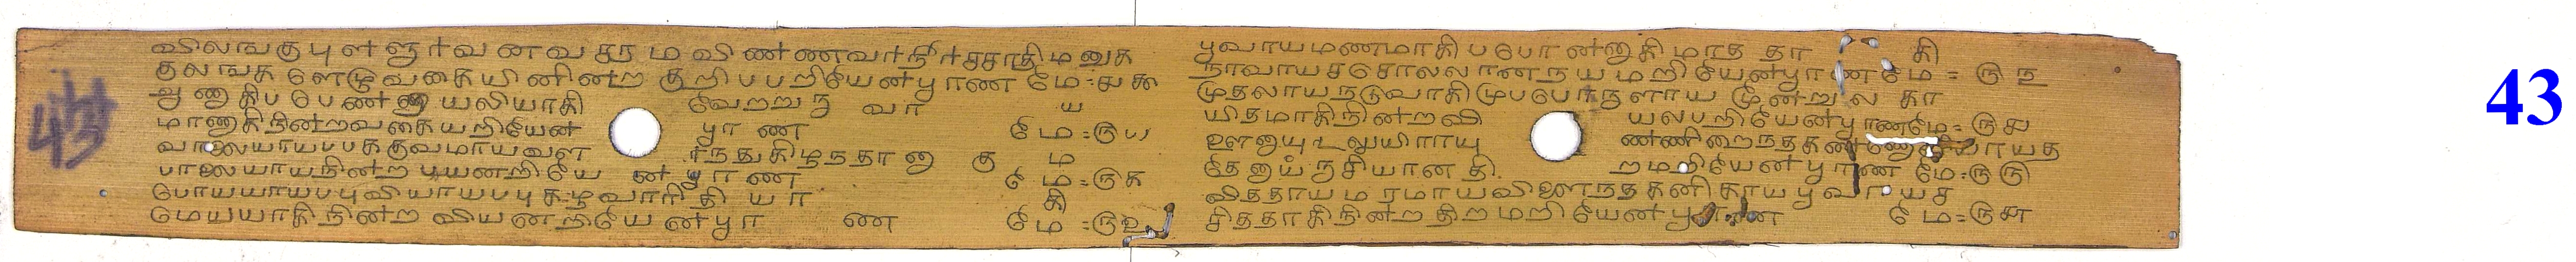 43
விலஙகுபுளஞாவனவசுரமவிணணவாநீாசசாதிமனுக
குலஙகளேழுவகையினினற குறிபபறியேனபூரணமே=சகூ
ஆணாகிபபெணணாயலியாகி வேறறுந வா ய
மாணாகிநினறவகையறியேன பூரண மே=ருய
வாலையாயபபககுவமாயவளா நதுகிழநதானு கு ம
பாலையாயநினற பயனறியே னபூரண மே=ருக
பொயயாயபபுவியாயபபுகழவாரிதி யா கி
மெயயாகிநினற வியனறியே னபூரண மே=ருஉ
பூவாயமணமாகிபபொனனாகிமாத தா கி
நாவாயசசொலலானநயமறியேனபூரணமே=ருந
முதலாயநடுவாகிமுபபொருளாய மூனறுல கா
யிதமாகிநினறவி யலபறியேனபூரணமே=ருசு
ஊனாயுடலுயிராயு ணணிறைநதகணணாயத
தேனாயருசியானதி றமறியேனபூரண மே=ருரு
விததாயமரமாயவிளைநதகனிகாயபூவாயச
சிததாகிநினறதிறமறியேனபூரண மே=ருசா
43